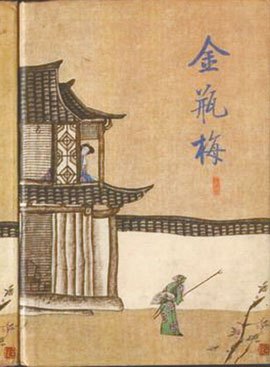 金瓶梅